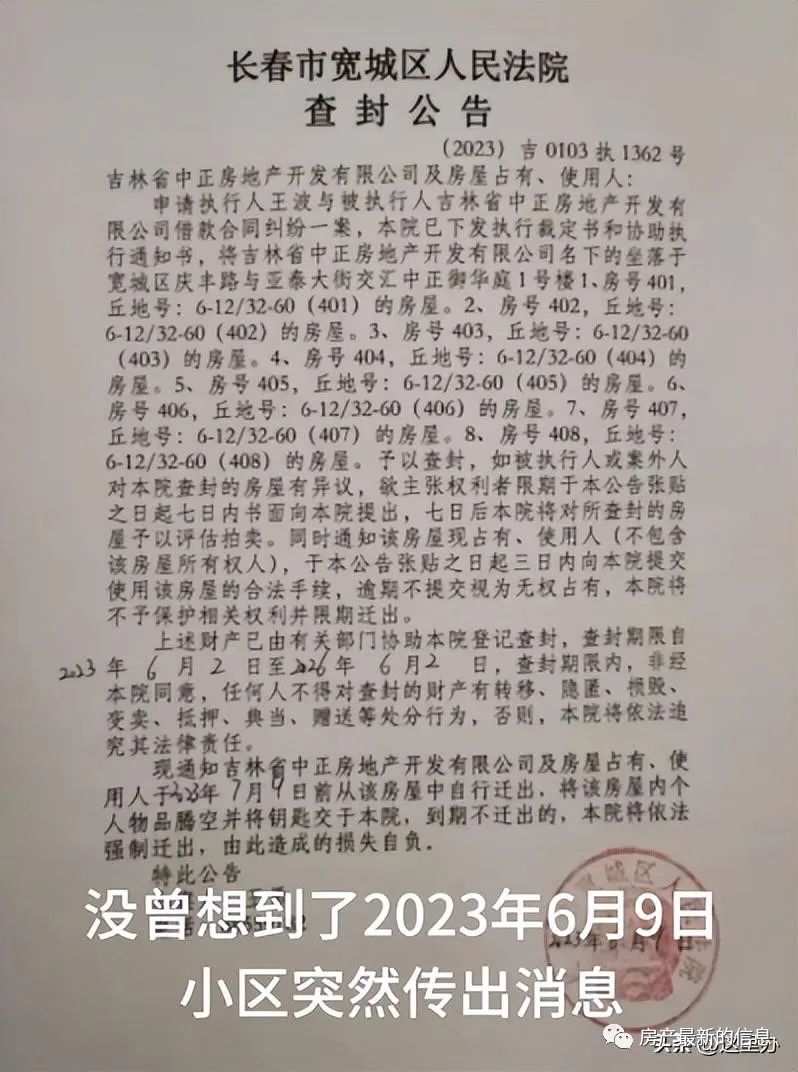 长春市宽城区人民法院
查封公告
(2023)吉0103执1362号
吉林省中正房地产开发有限公司及房屋占有、使用人:
申请执行人王波与被执行人吉林省中正房地产开发有
限公司借款合同纠纷一案,本院已下发执行裁定书和协助执
行通知书,将吉林省中正房地产开发有限公司名下的坐落于
宽城区庆丰路与亚泰大街交汇中正御华庭1号楼1、房号401,
丘地号:6-12/32-60(401)的房屋。2、房号402,丘地号:
6-12/32-60(402)的房屋。3、房号403,丘地号:6-12/32-60
(403)的房屋。4、房号404,丘地号:6-12/32-60(404)的
房屋。5、房号405,丘地号:6-12/32-60(405)的房屋。6、
房号406,丘地号:6-12/32-60(406)的房屋。7、房号407,
丘地号:6-12/32-60(407)的房屋。8、房号408,丘地号:
6-12/32-60(408)的房屋。予以查封,如被执行人或案外人
对本院查封的房屋有异议,欲主张权利者限期于本公告张贴
之日起七日内书面向本院提出,七日后本院将对所查封的房
屋予以评估拍卖。同时通知该房屋现占有、使用人(不包含
该房屋所有权人),于本公告张贴之日起三日内向本院提交
使用该房屋的合法手续,逾期不提交视为无权占有,本院将
不予保护相关权利并限期迁出。
上述财产已由有关部门协助本院登记查封,查封期限自
2023年6月2日至2026年6月2日,查封期限内,非经
本院同意,任何人不得对查封的财产有转移、隐匿、损毁、
变卖、抵押、典当、赠送等处分行为,否则,本院将依法追
究其法律责任。
现通知吉林省中正房地产开发有限公司及房屋占有、使
用人于2023年7月9日前从该房屋中自行迁出,将该房屋内个
人物品腾空并将钥匙交于本院,到期不迁出的,本院将依法
强制迁出,由此造成的损失自负。
特此公告
没曾想到了2023年6月9日
2023年6月9日
宽城区人民法院
小区突然传出消息
房产最新的信息
头条@这里办